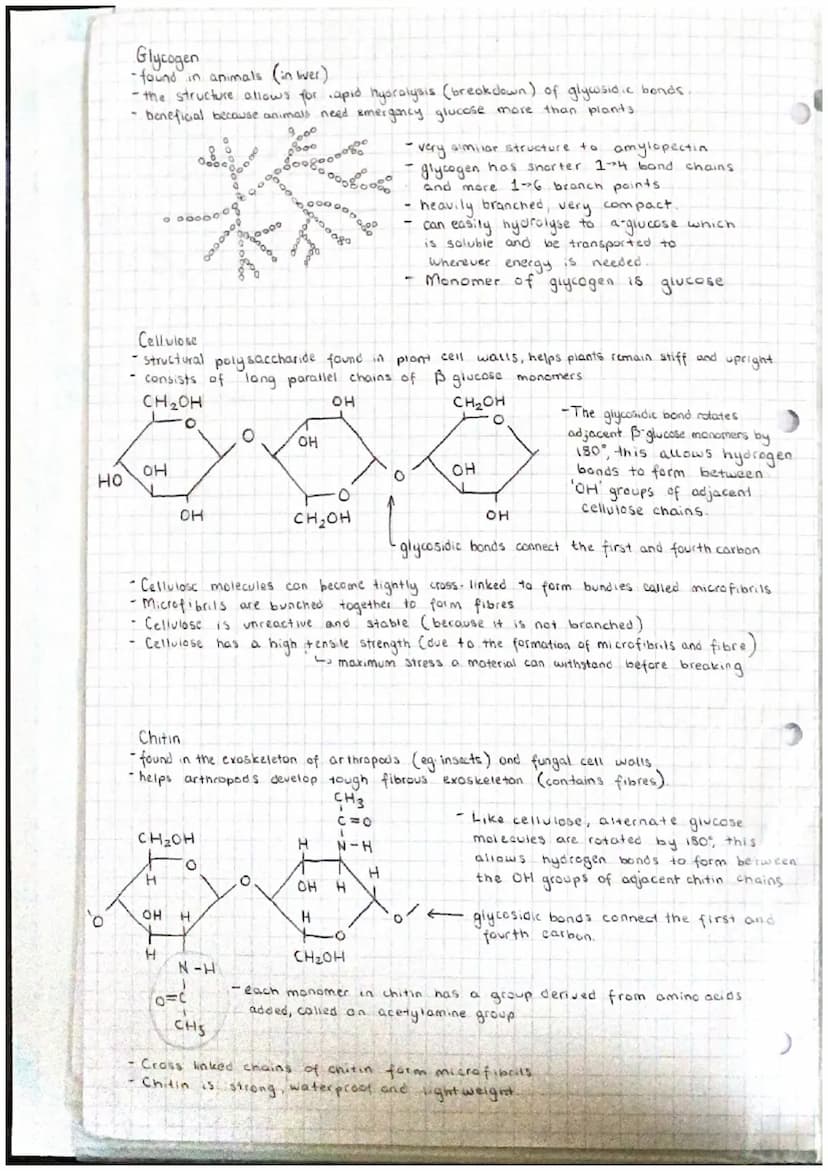 Glycogen
- found in animals (in liver)
- the structure allows for rapid hydrolysis (breakdown) of glycosidic bonds.
- beneficial because animals need emergency glucose more than plants
- very similar structure to amylopectin
- glycogen has shorter 1→4 bond chains
and more 1→6 branch points
- heavily branched, very compact.
- can easily hydrolyse to α-glucose which
is soluble and be transported to
wherever energy is needed.
- Monomer of glycogen is glucose
Cellulose
- structural polysaccharide found in plant cell walls, helps plants remain stiff and upright
- consists of long parallel chains of β glucose monomers
CH₂OH OH CH₂OH
O O OH O
HO OH O OH
OH O OH
CH₂OH
- The glycosidic bond rotates
adjacent β-glucose monomers by
180°, this allows hydrogen
bonds to form between
'OH' groups of adjacent
cellulose chains.
glycosidic bonds connect the first and fourth carbon
- Cellulose molecules can become tightly cross-linked to form bundles called microfibrils
- Microfibrils are bunched together to form fibres
- Cellulose is unreactive and stable (because it is not branched)
- Cellulose has a high tensile strength (due to the formation of microfibrils and fibre)
↳ maximum stress a material can withstand before breaking
Chitin
- found in the exoskeleton of arthropods (eg. insects) and fungal cell walls
- helps arthropods develop tough fibrous exoskeleton (contains fibres).
CH₃
C=O
CH₂OH H N-H
O H
H O OH H
OH H H O
O
H O
CH₂OH
N-H
O=C
CH₃
- Like cellulose, alternate glucose
molecules are rotated by 180°, this
allows hydrogen bonds to form between
the OH groups of adjacent chitin chains
← glycosidic bonds connect the first and
fourth carbon.
- each monomer in chitin has a group derived from amino acids
added, called an acetylamine group
- Cross linked chains of chitin form microfibrils
- Chitin is strong, waterproof and lightweight.